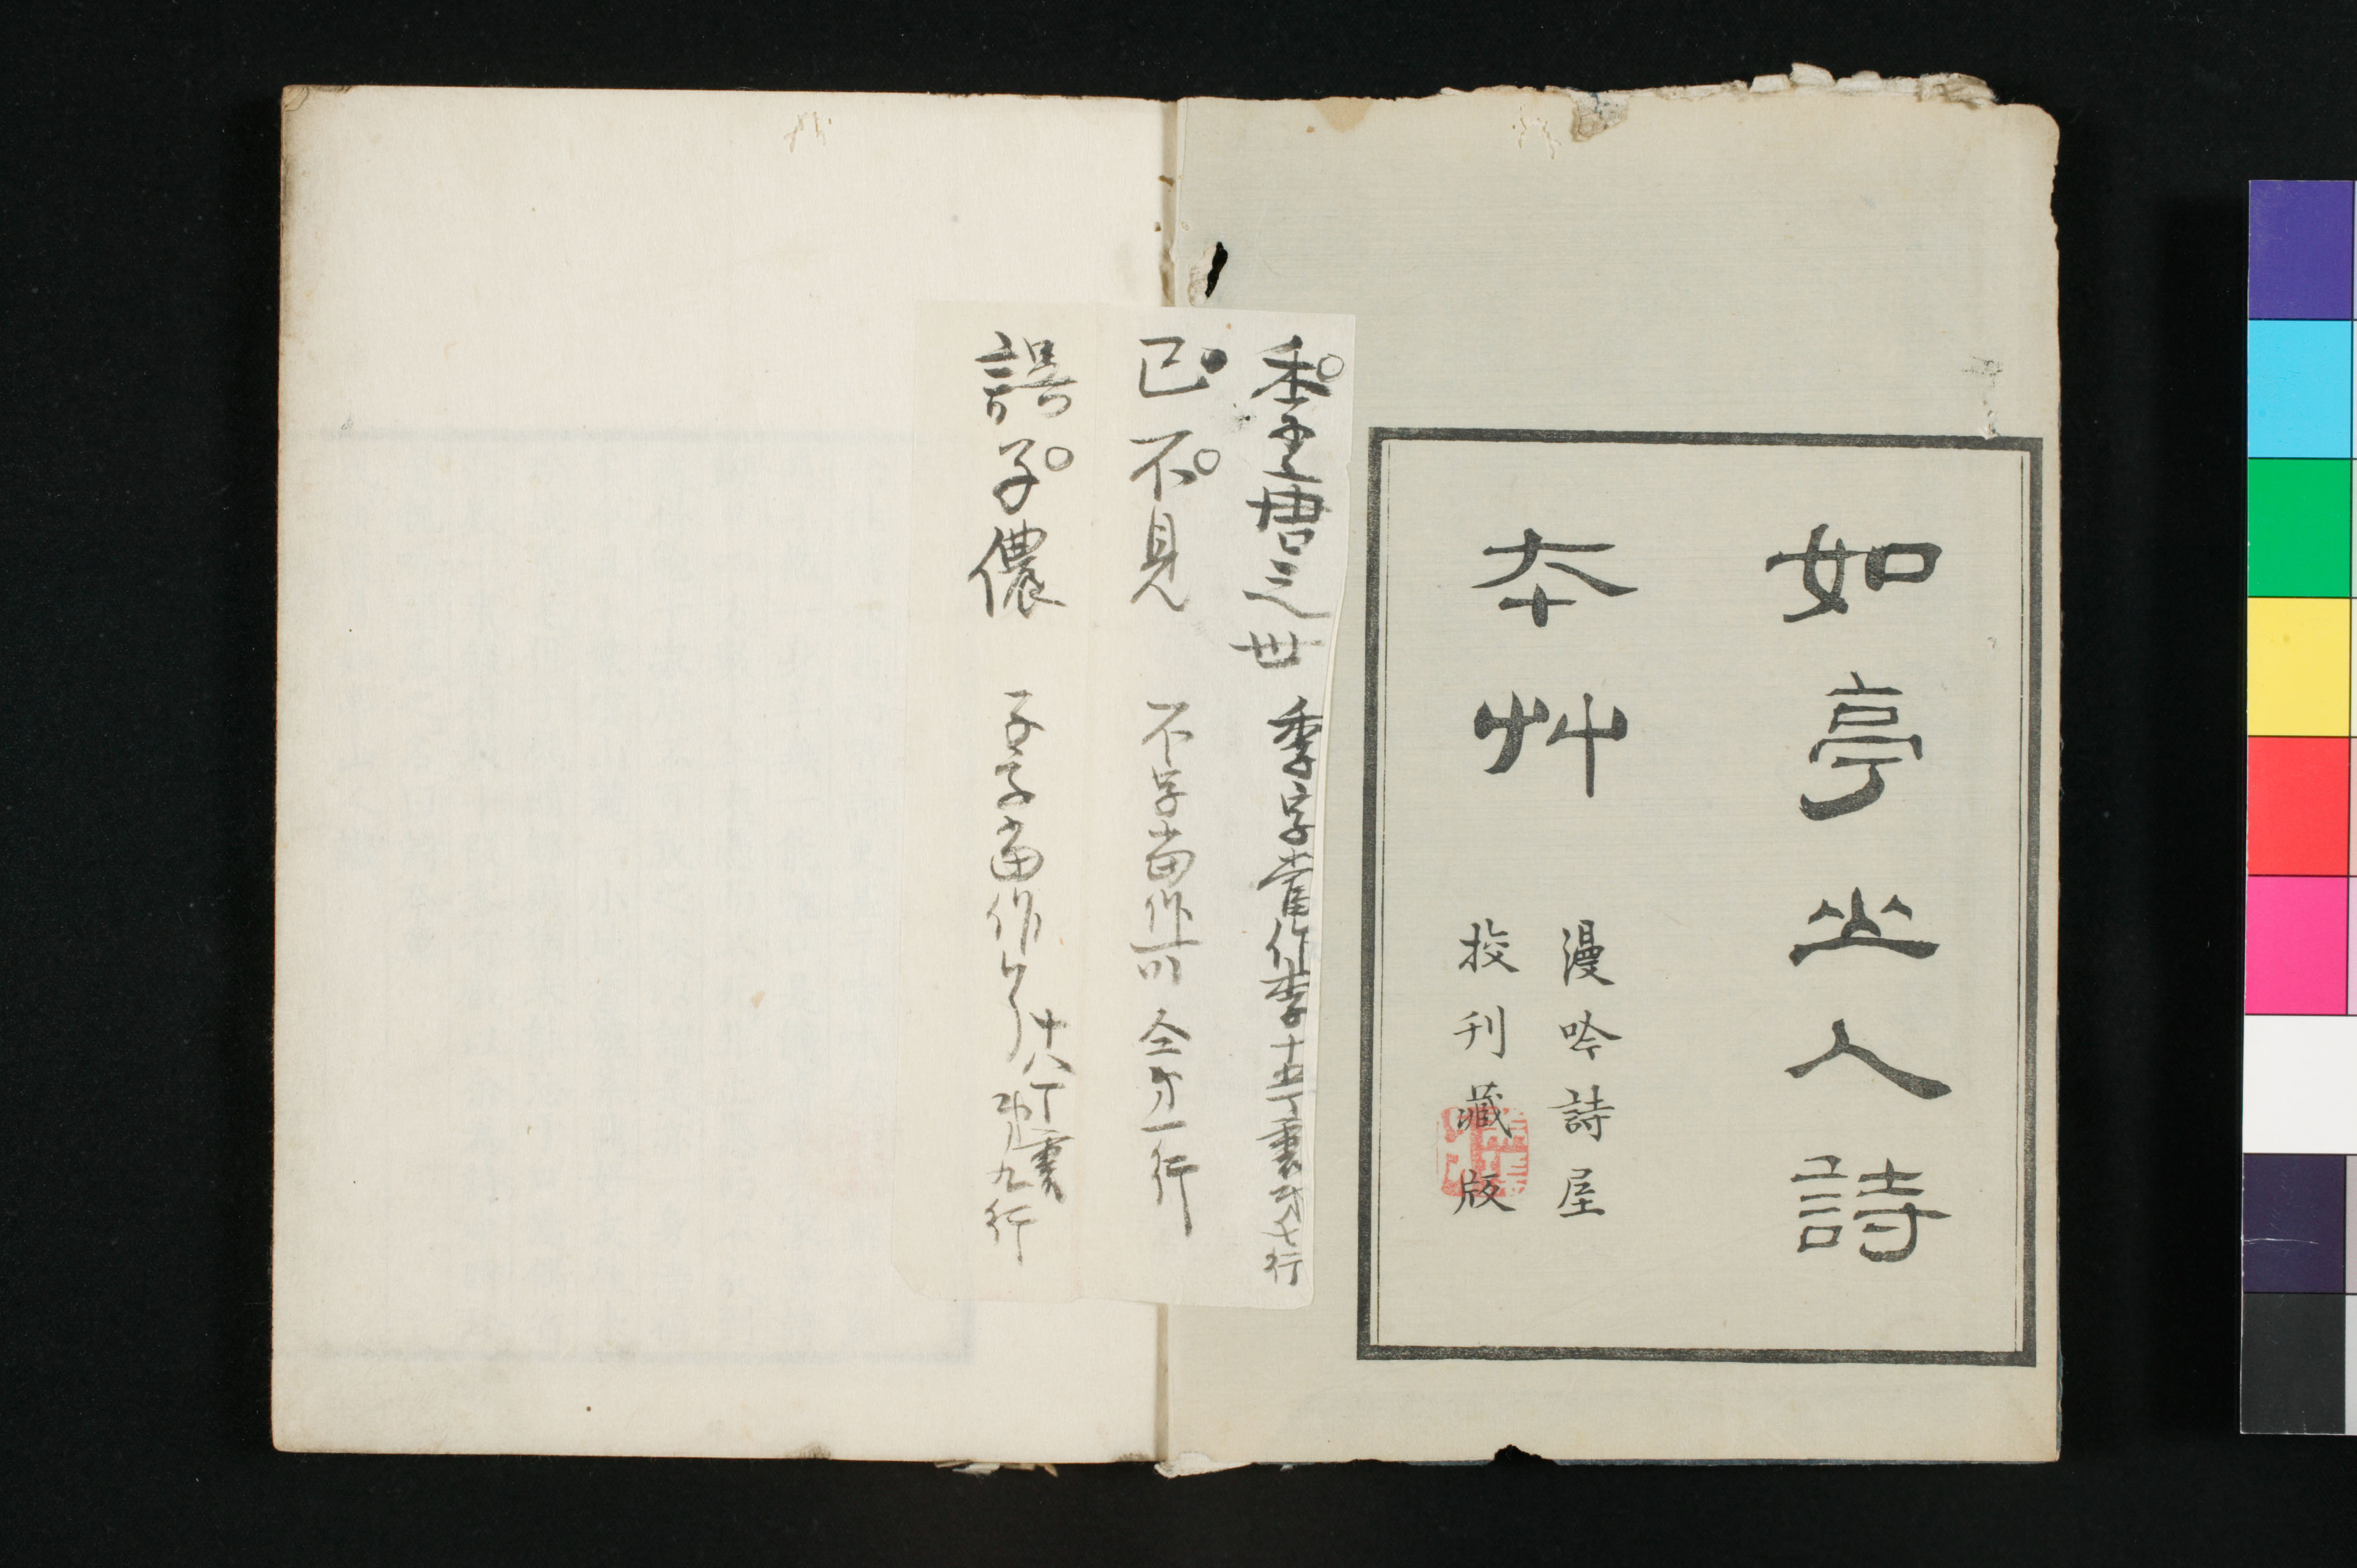 如亭山人詩
本艸
漫吟詩屋
挍刋藏版
季唐之世 季字當作李 十五丁裏第七行
已不見 不字當作可 仝才一行
誤子儂 子字當作了 十八丁裏第九行